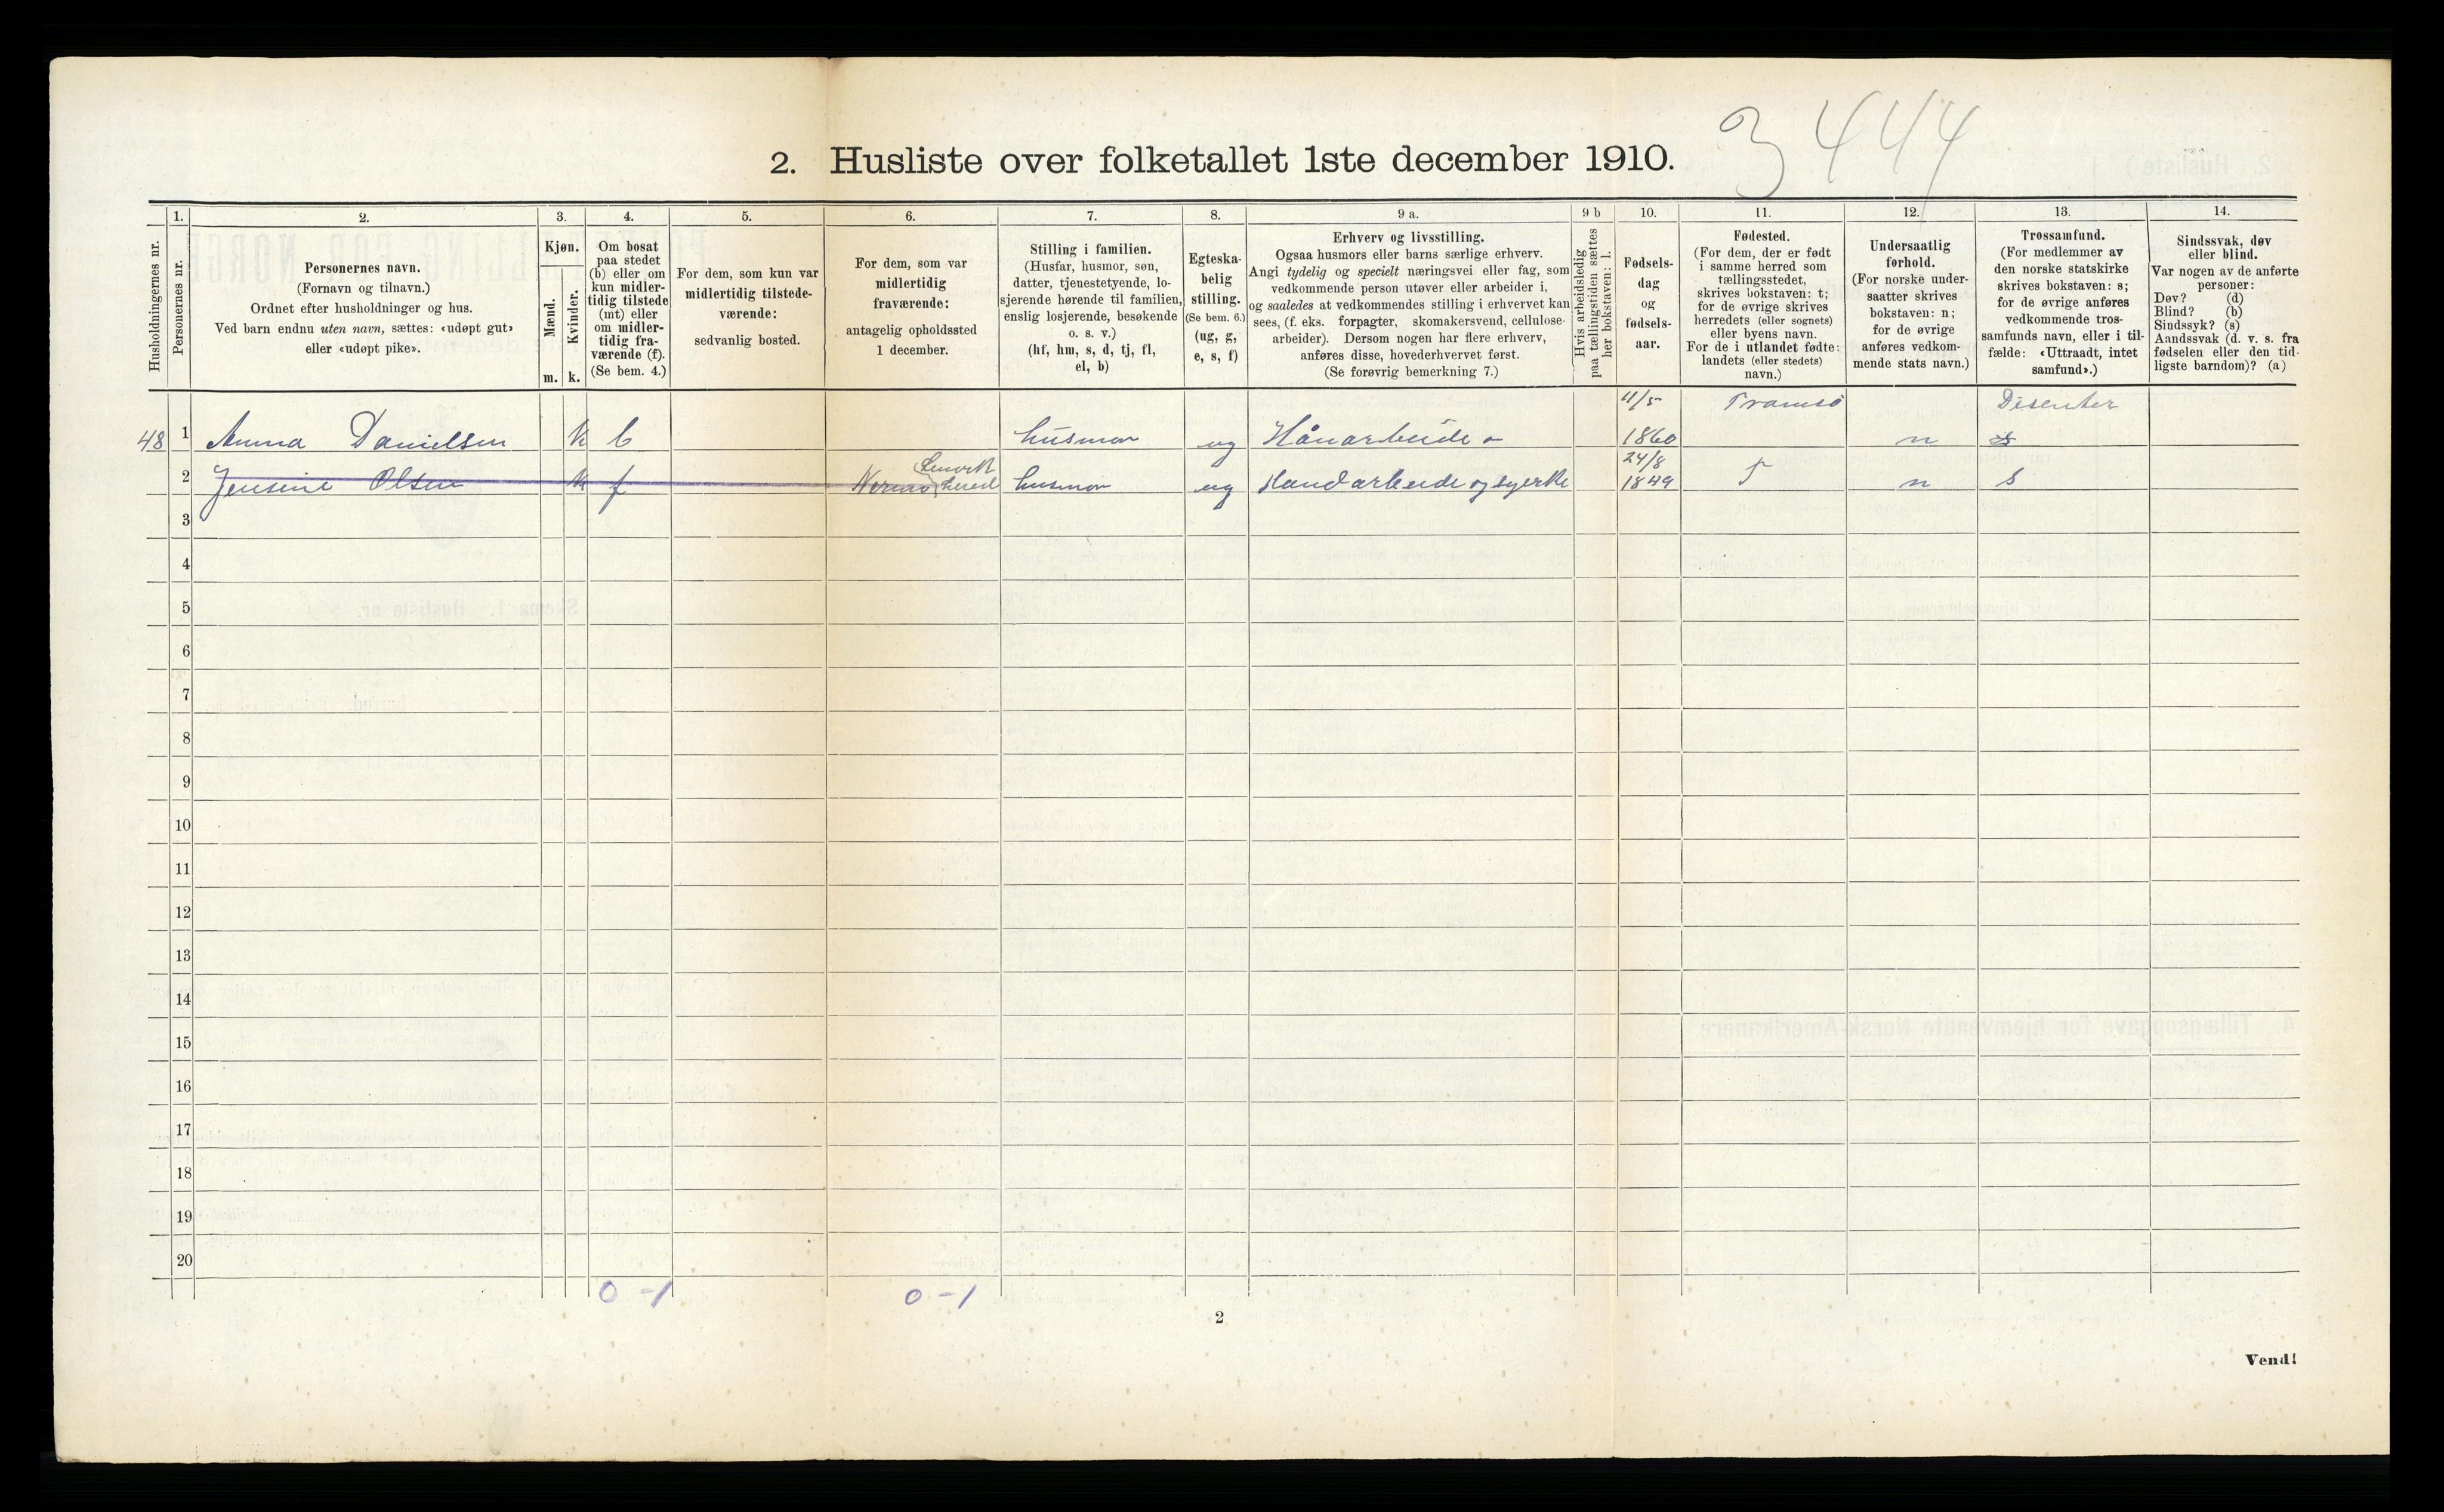 3444
2. Husliste over folketallet 1ste december 1910.
Husholdningernes nr.
1.
Personernes nr.
2.
Personernes navn.
(Fornavn og tilnavn.)
Ordnet efter husholdninger og hus.
Ved barn endnu uten navn, sættes: «udøpt gut»
eller «udøpt pike».
3.
Kjøn.
Mænd.
Kvinder.
m. k.
4.
Om bosat
paa stedet
(b) eller om
kun midler-
tidig tilstede
(mt) eller
om midler-
tidig fra-
værende (f).
(Se bem. 4.)
5.
For dem, som kun var
midlertidig tilstede-
værende:
sedvanlig bosted.
6.
For dem, som var
midlertidig
fraværende:
antagelig opholdssted
1 december.
7.
Stilling i familien.
(Husfar, husmor, søn,
datter, tjenestetyende, lo-
sjerende hørende til familien,
enslig losjerende, besøkende
o. s. v.)
(hf, hm, s, d, tj, fl,
el, b)
8.
Egteska-
belig
stilling.
(Se bem. 6.)
(ug, g,
e, s, f)
9 a.
Erhverv og livsstilling.
Ogsaa husmors eller barns særlige erhverv.
Angi tydelig og specielt næringsvei eller fag, som
vedkommende person utøver eller arbeider i,
og saaledes at vedkommendes stilling i erhvervet kan
sees, (f. eks. forpagter, skomakersvend, cellulose-
arbeider). Dersom nogen har flere erhverv,
anføres disse, hovederhvervet først.
(Se forøvrig bemerkning 7.)
9 b
Hvis arbeidsledig
paa tællingstiden sættes
her bokstaven: l.
10.
Fødsels-
dag
og
fødsels-
aar.
11.
Fødested.
(For dem, der er født
i samme herred som
tællingsstedet,
skrives bokstaven: t;
for de øvrige skrives
herredets (eller sognets)
eller byens navn.
For de i utlandet fødte:
landets (eller stedets)
navn.)
12.
Undersaatlig
forhold.
(For norske under-
saatter skrives
bokstaven: n;
for de øvrige
anføres vedkom-
mende stats navn.)
13.
Trossamfund.
(For medlemmer av
den norske statskirke
skrives bokstaven: s;
for de øvrige anføres
vedkommende tros-
samfunds navn, eller i til-
fælde: «Uttraadt, intet
samfund».)
14.
Sindssvak, døv
eller blind.
Var nogen av de anførte
personer:
Døv? (d)
Blind? (b)
Sindssyk? (s)
Aandssvak (d. v. s. fra
fødselen eller den tid-
ligste barndom)? (a)
11/5 Tromsö Disenter
48 1 Anna Danielsen K b husmor ug Hånarbeide 1860 n s
Lenvik 24/8
2 Jensine Olsen K f herred husmor ug Handarbeide og syerke 1849 T n s
3
4
5
6
7
8
9
10
11
12
13
14
15
16
17
18
19
20
0 - 1 0 - 1
2
Vend!